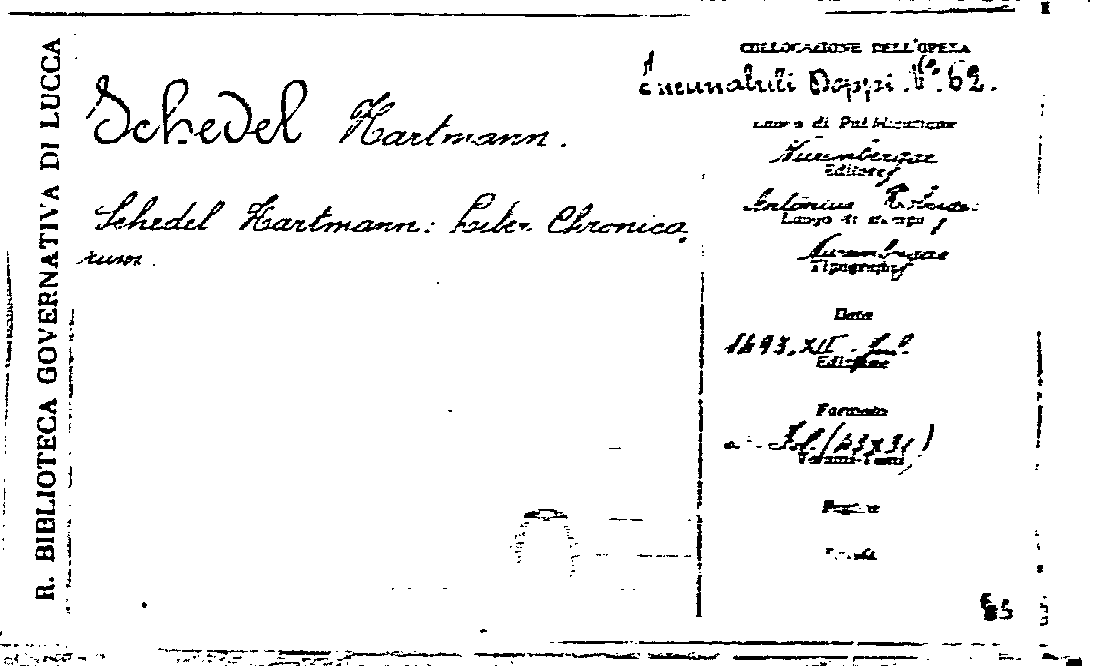 R. BIBLIOTECA GOVERNATIVA DI LUCCA
Schedel Hartmann.
Schedel Hartmann: Liber Chronica,
rum.
COLLOCAZIONE DELL'OPERA
Incunabuli Doppi. N.º 62.
Luogo di Pubblicazione
Nurembergae
Editore
Antonius
Luogo di stampa
Nurembergae
Tipografo
Data
1493. XII
Edizione
Formato
Fol.
Volumi-Tomi
Pagine